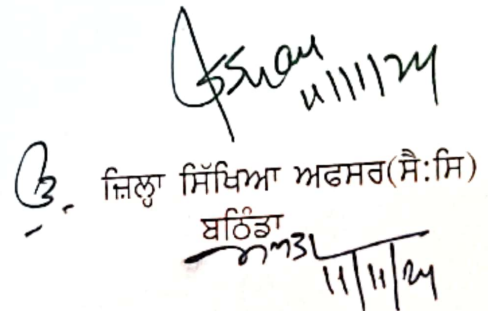 11/11/24
ਜ਼ਿਲ੍ਹਾ ਸਿੱਖਿਆ ਅਫਸਰ(ਸੈ:ਸਿ)
ਬਠਿੰਡਾ
11/11/24